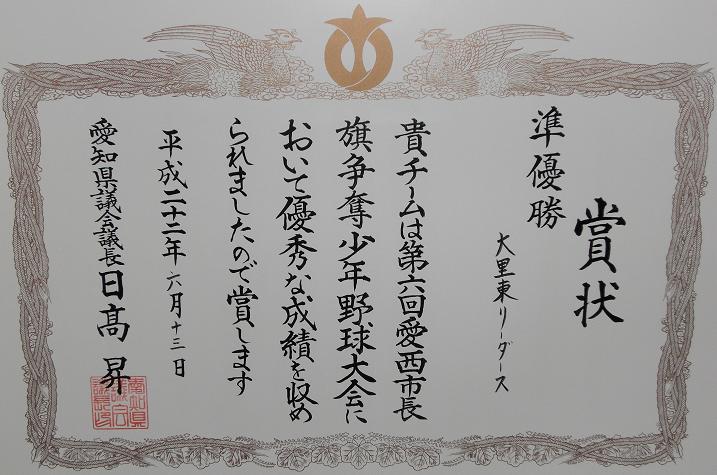 賞状
準優勝
大里東リーダース
貴チームは第六回愛西市長
旗争奪少年野球大会に
おいて優秀な成績を収め
られましたので賞します
平成二十二年六月十三日
愛知県議会議長日高昇
愛知県
議会
議長印